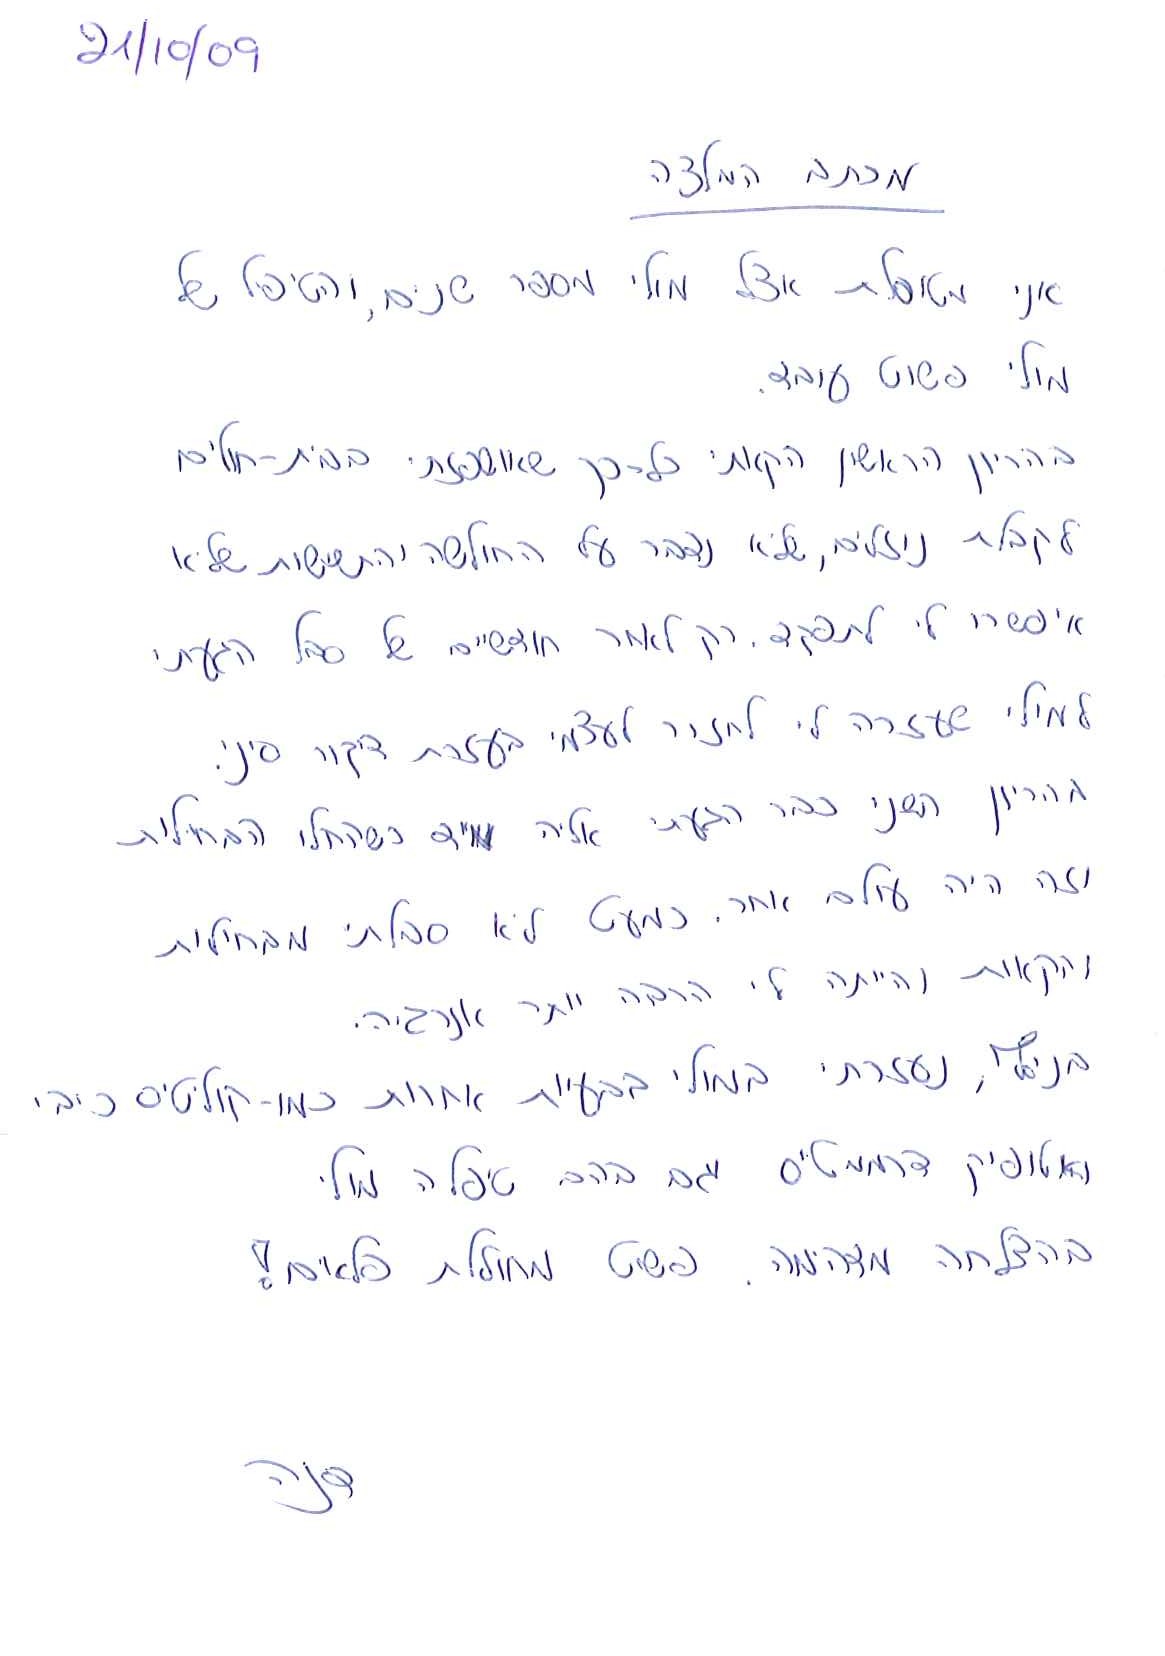 21/10/09
מכתב המלצה
אני מטופלת אצל מולי מספר שנים, והטיפול של
מולי פשוט עובד.
בהריון הראשון הקאתי כל-כך שאושפזתי בבית-חולים
לקבלת נוזלים, שלא נדבר על החולשה והתשישות שלא
איפשרו לי לתפקד. רק לאחר חודשיים של סבל הגעתי
למולי שעזרה לי לחזור לעצמי בעזרת דיקור סיני.
בהריון השני כבר הגעתי אליה מיד כשהחלו הבחילות
וזה היה עולם אחר. כמעט לא סבלתי מבחילות
והקאות והייתה לי הרבה יותר אנרגיה.
בנוסף, נעזרתי במולי בבעיות אחרות כמו-קוליטיס כיבי
ואטופיק דרמטיטיס גם בהם טיפלה מולי
בהצלחה מדהימה. פשוט מחוללת פלאים!
דנה